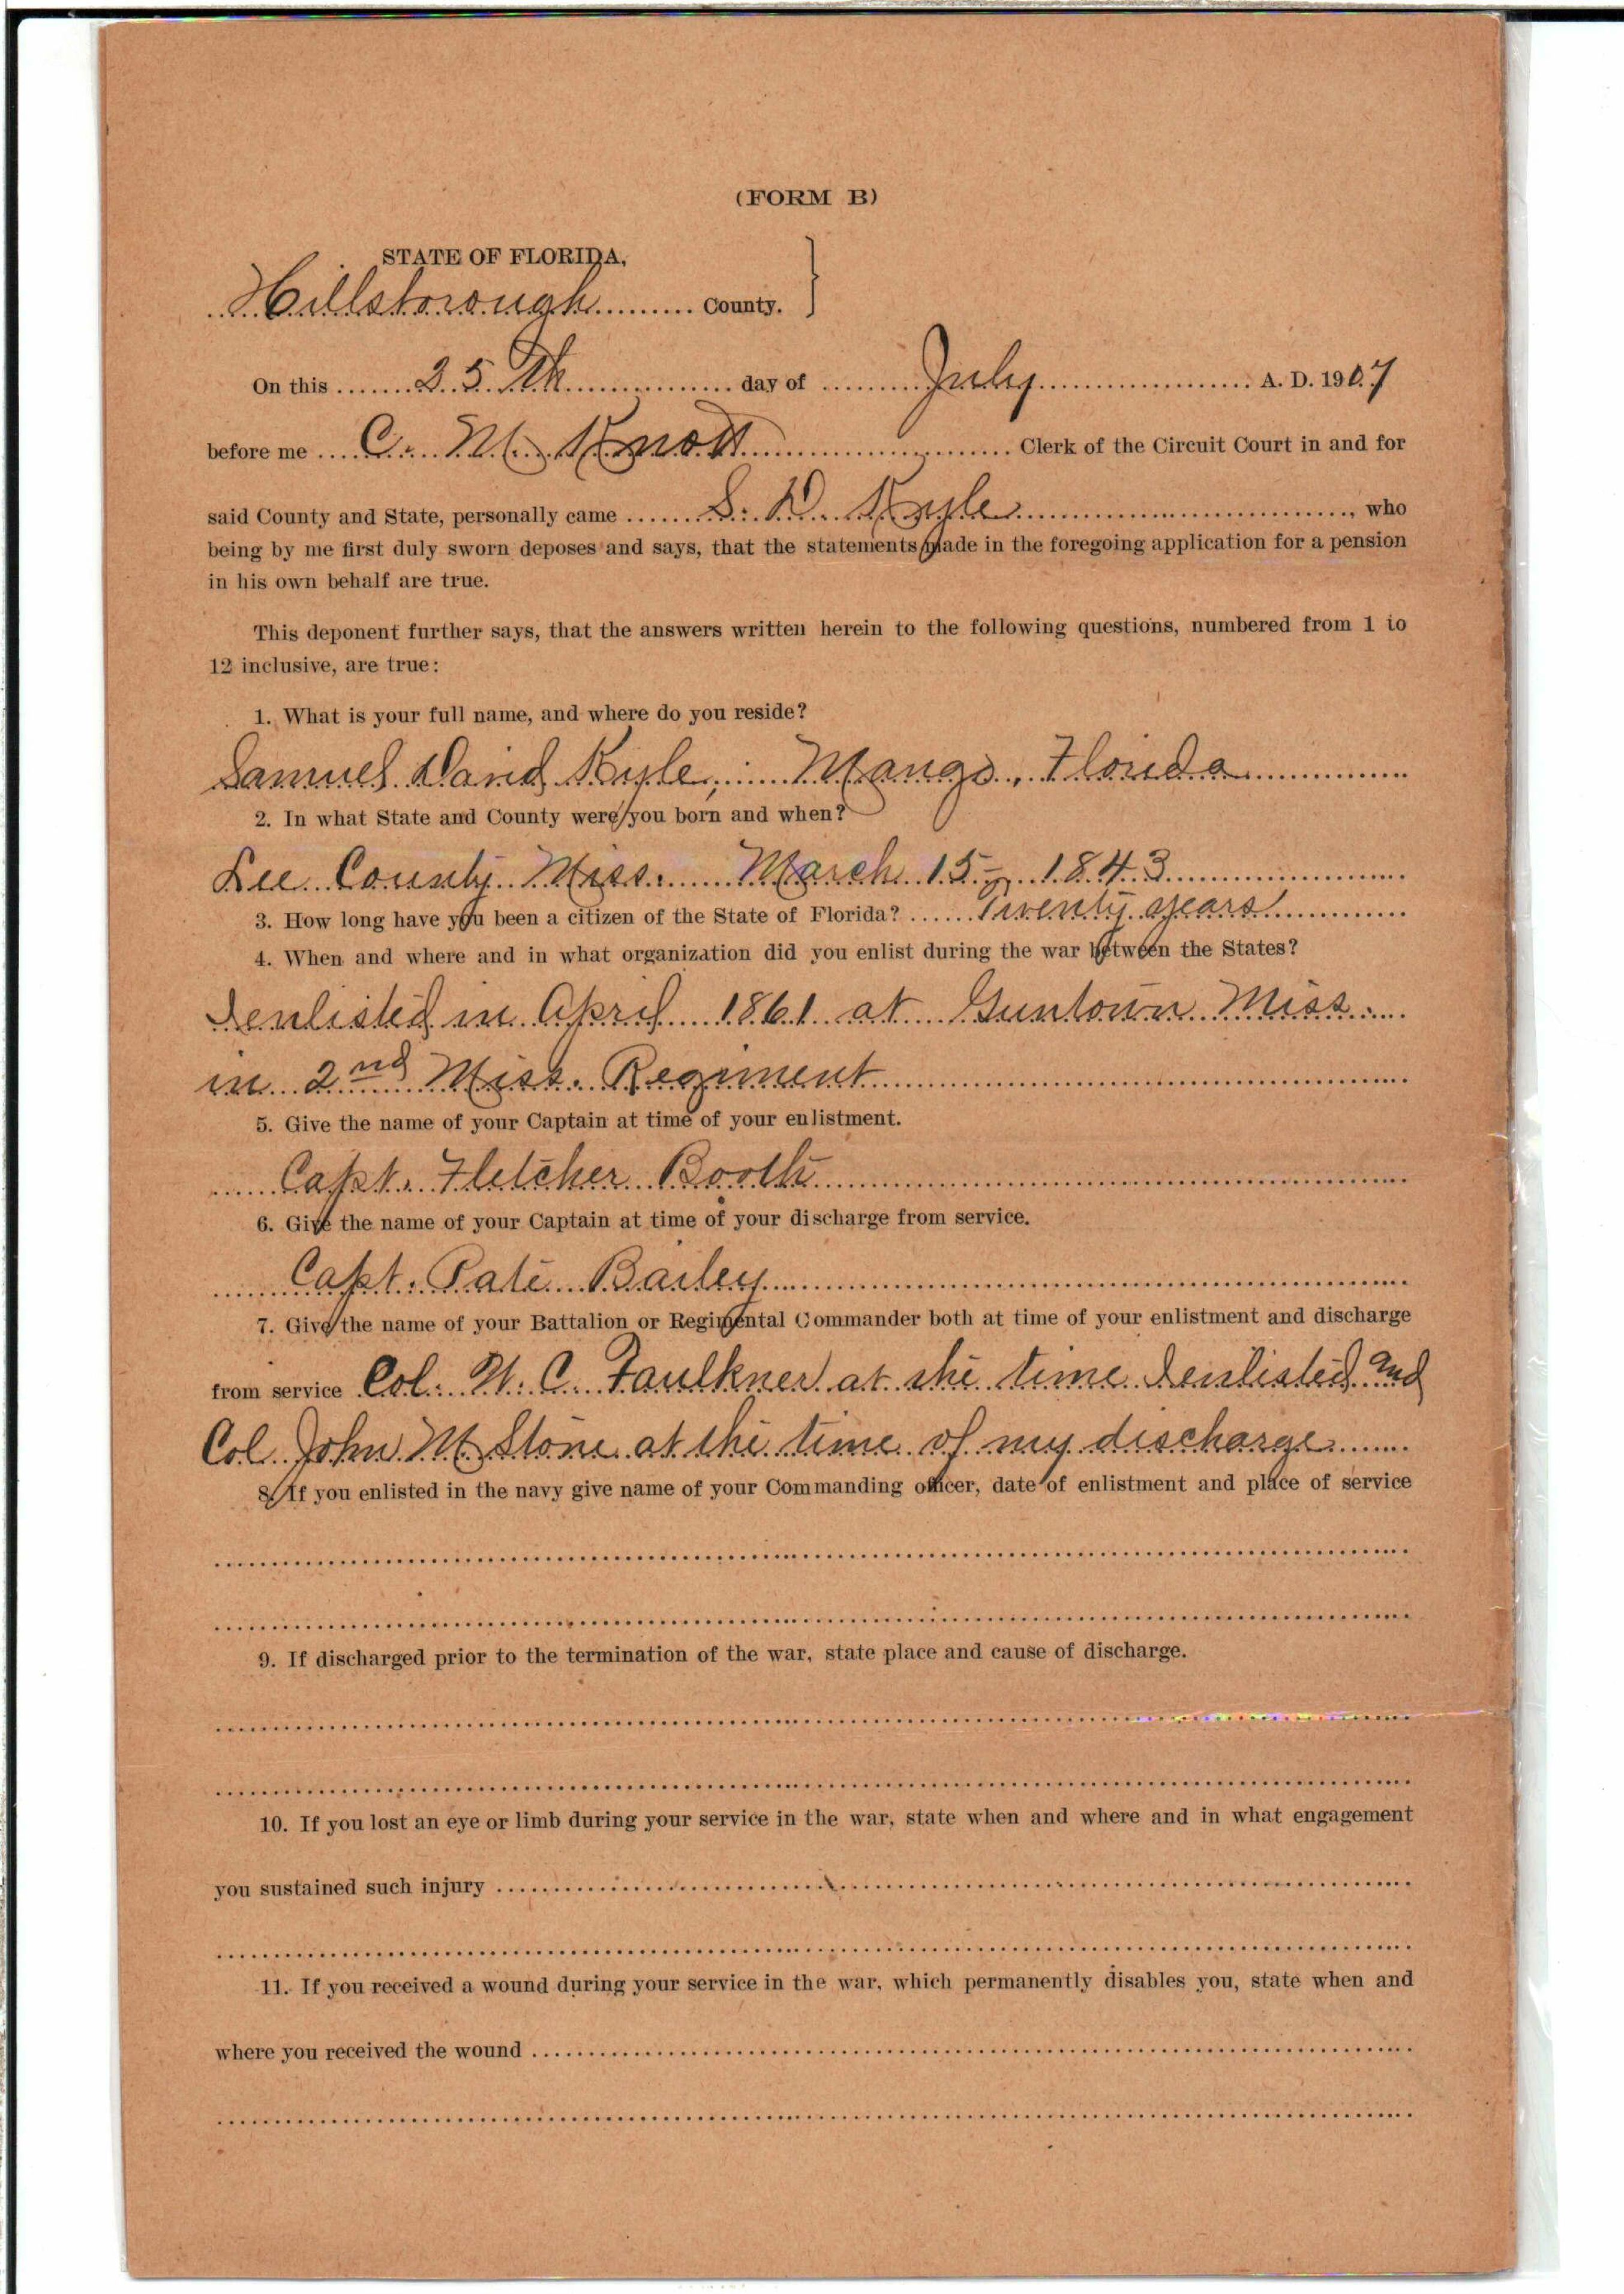 (FORM B)
STATE OF FLORIDA,
Hillsborough County.
On this 25th day of July A. D. 1907
before me C. M. Knott Clerk of the Circuit Court in and for
said County and State, personally came S. D. Kyle, who
being by me first duly sworn deposes and says, that the statements made in the foregoing application for a pension
in his own behalf are true.
This deponent further says, that the answers written herein to the following questions, numbered from 1 to
12 inclusive, are true:
1. What is your full name, and where do you reside?
Samuel David Kyle, Mango, Florida
2. In what State and County were you born and when?
Lee County Miss. March 15, 1843
3. How long have you been a citizen of the State of Florida? Twenty years
4. When and where and in what organization did you enlist during the war between the States?
I enlisted in April 1861 at Guntown Miss.
in 2nd Miss. Regiment
5. Give the name of your Captain at time of your enlistment.
Capt. Fletcher Booth
6. Give the name of your Captain at time of your discharge from service.
Capt. Pate Bailey
7. Give the name of your Battalion or Regimental Commander both at time of your enlistment and discharge
from service Col. W. C. Faulkner at the time I enlisted and
Col. John M. Stone at the time of my discharge
8. If you enlisted in the navy give name of your Commanding officer, date of enlistment and place of service
9. If discharged prior to the termination of the war, state place and cause of discharge.
10. If you lost an eye or limb during your service in the war, state when and where and in what engagement
you sustained such injury
11. If you received a wound during your service in the war, which permanently disables you, state when and
where you received the wound